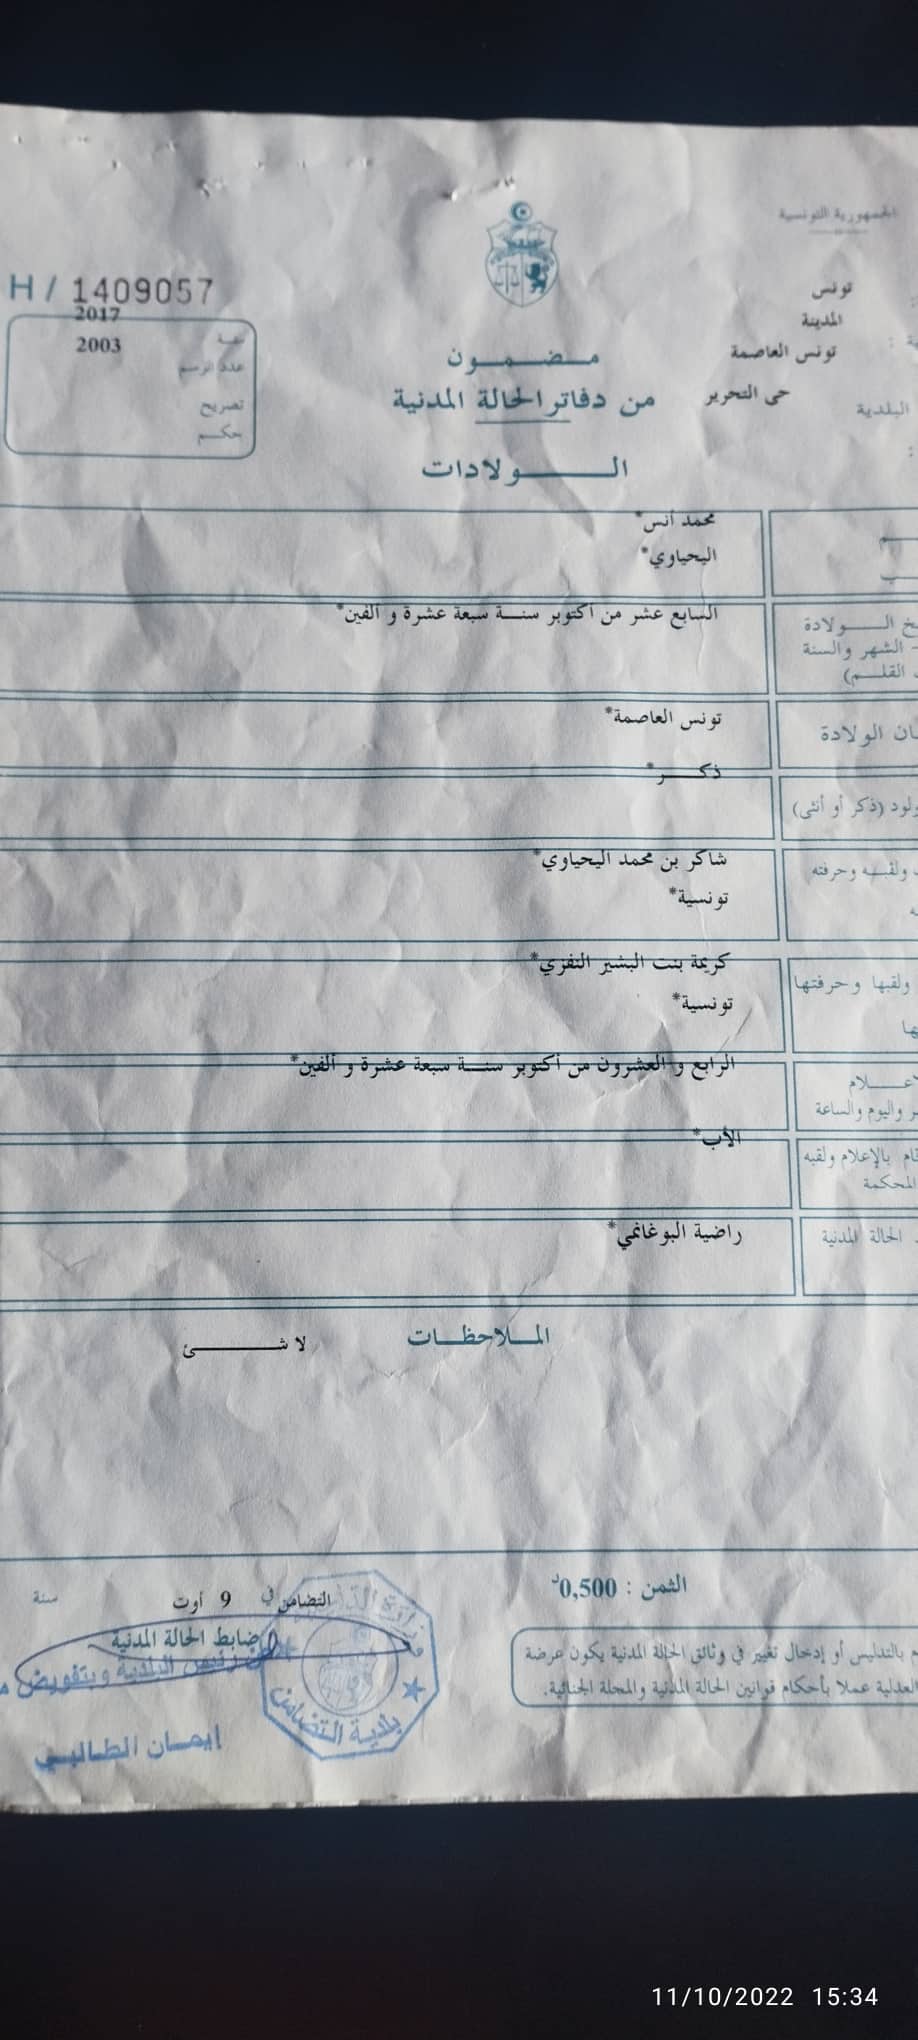 الجمهورية التونسية
H / 1409057
تونس
المدينة
تونس العاصمة
حى التحرير
البلدية
2017
سنة
2003
عدد الرسم
تصريح
حكم
مضمون
من دفاتر الحالة المدنية
الولادات
محمد أنس*
اليحياوي*
الولادة
السابع عشر من أكتوبر سنة سبعة عشرة و ألفين*
الشهر والسنة
القلم)
الولادة
تونس العاصمة*
ذكر*
(ذكر أو أنثى)
ولقبه وحرفته
شاكر بن محمد اليحياوي*
تونسية*
ولقبها وحرفتها
كريمة بنت البشير النفزي*
تونسية*
الرابع و العشرون من أكتوبر سنة سبعة عشرة و ألفين*
واليوم والساعة
الأب*
بالإعلام ولقبه
المحكمة
الحالة المدنية
راضية البوغانمي*
الملاحظات
لا شئ
الثمن : 0,500د
التضامن في 9 أوت سنة
ضابط الحالة المدنية
رئيس البلدية وبتفويض
إيمان الطالبي
بلدية التضامن
بالتدليس أو إدخال تغيير في وثائق الحالة المدنية يكون عرضة
العدلية عملا بأحكام قوانين الحالة المدنية والمجلة الجنائية.
11/10/2022 15:34